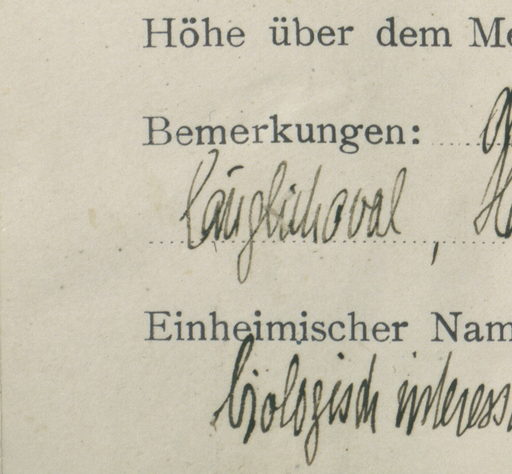 Höhe über dem Me
Bemerkungen:
länglichoval,
Einheimischer Nam
biologisch interess